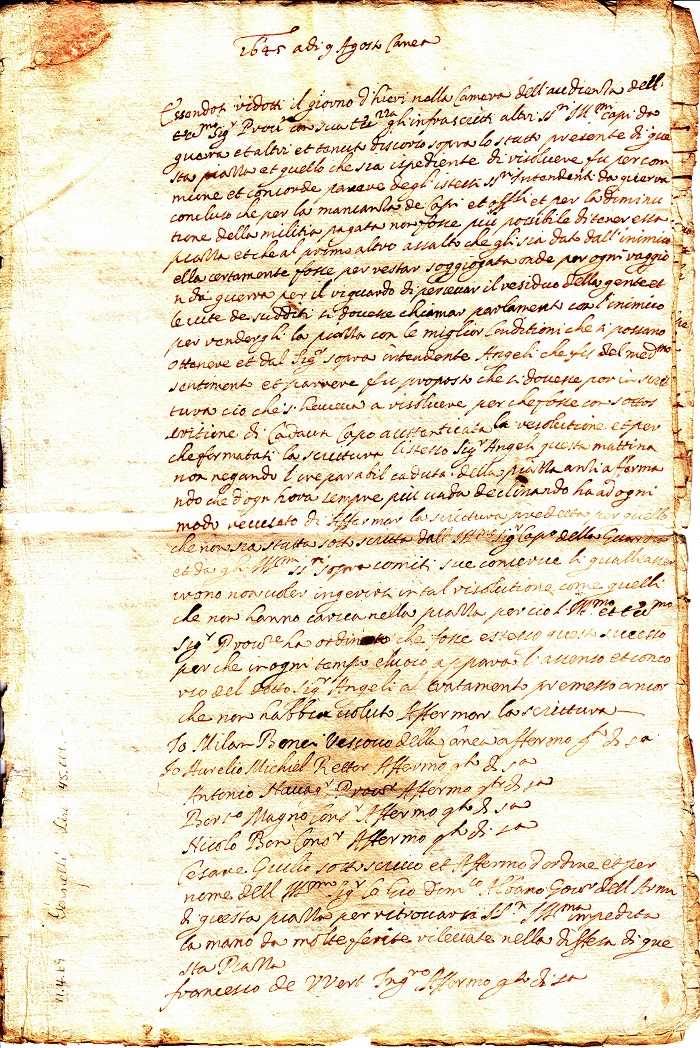 1645 adi 9 Agosto Canea
Essendosi ridotti il giorno d'hieri nella Camera dell'audienza dell
Ecc.mo Sig.r Prov.r con sua Ecc.za gli infrascritti altri SS.ri Ill.mi Capi da
guerra et altri et tenuto discorso sopra lo stato presente di que
sta piazza et quello che sia ispediente di risolvere fu per com
mune et concorde parere degli istessi SS.ri Intendenti da guerra
concluso che per la mancanza de Capi et et per la diminu
tione della militia pagata non fosse più possibile di tener esta
piazza et che al primo altro assalto che gli sia dato dall'inimico
ella certamente fosse per restar soggiogata onde per ogni raggio
n di guerra per il riguardo di preservar il residuo della gente et
le vite de sudditi si dovesse chiamar parlamento con l'inimico
per rendergli la piazza con le miglior Conditioni che si possano
ottenere et dal Sig.r sopra intendente Angeli che fu del med.mo
sentimento et parvere fu proposto che si dovesse por in scrit
tura ciò che s'haveva a risolvere perche fosse con sottos
crittione di Cadaun Capo auttenticata la resolutione et per
che fermatasi la scrittura l'istesso Sig.r Angeli questa mattina
non negando l'ireparabil caduta della piazza anzi aferma
ndo che d'ogn'hora sempre più vada declinando ha ad ogni
modo recusato di Affermar la scrittura predetta per quello
che non sia stata sottoscritta dall' Sig.r Capo della Guerra
et da gli Ill.mi SS.ri sopracomiti sue converue li quali asser
irono non voler ingerirsi in tal risolutione come quelli
che non hanno carica nella piazza perciò l'Ill.mo et Ecc.mo
Sig.r Prov.re ha ordinato che fosse esteso questo successo
perche in ogni tempo e luoco appara l'assenso et conco
rso del detto Sig.r Angeli al tratamento premesso ancor
che non habbia voluto Affermar la scrittura
Io Milan Bonci Vescovo della Canea affermo q.to di sa
Io Aurelio Michiel Rettor Affermo q.to di sa
Antonio Navag.r Prov.r Affermo q.to di sa
Bort.o Magno Cons.r Affermo q.to di sa
Nicolo Bon Cons.r Affermo q.to di sa
Cesare Giulio sottoscrivo et Affermo d'ordine et per
nome dell'Ill.mo Sig.r Co Gio Dom.co Albano Gov.r dell'Armi
di questa piazza per ritrovarsi SS.ria Ill.ma impedita
la mano da molte ferite rilevate nella diffesa di que
sta Piazza
francesco de VVert Ing.ro Affermo q.to di sa